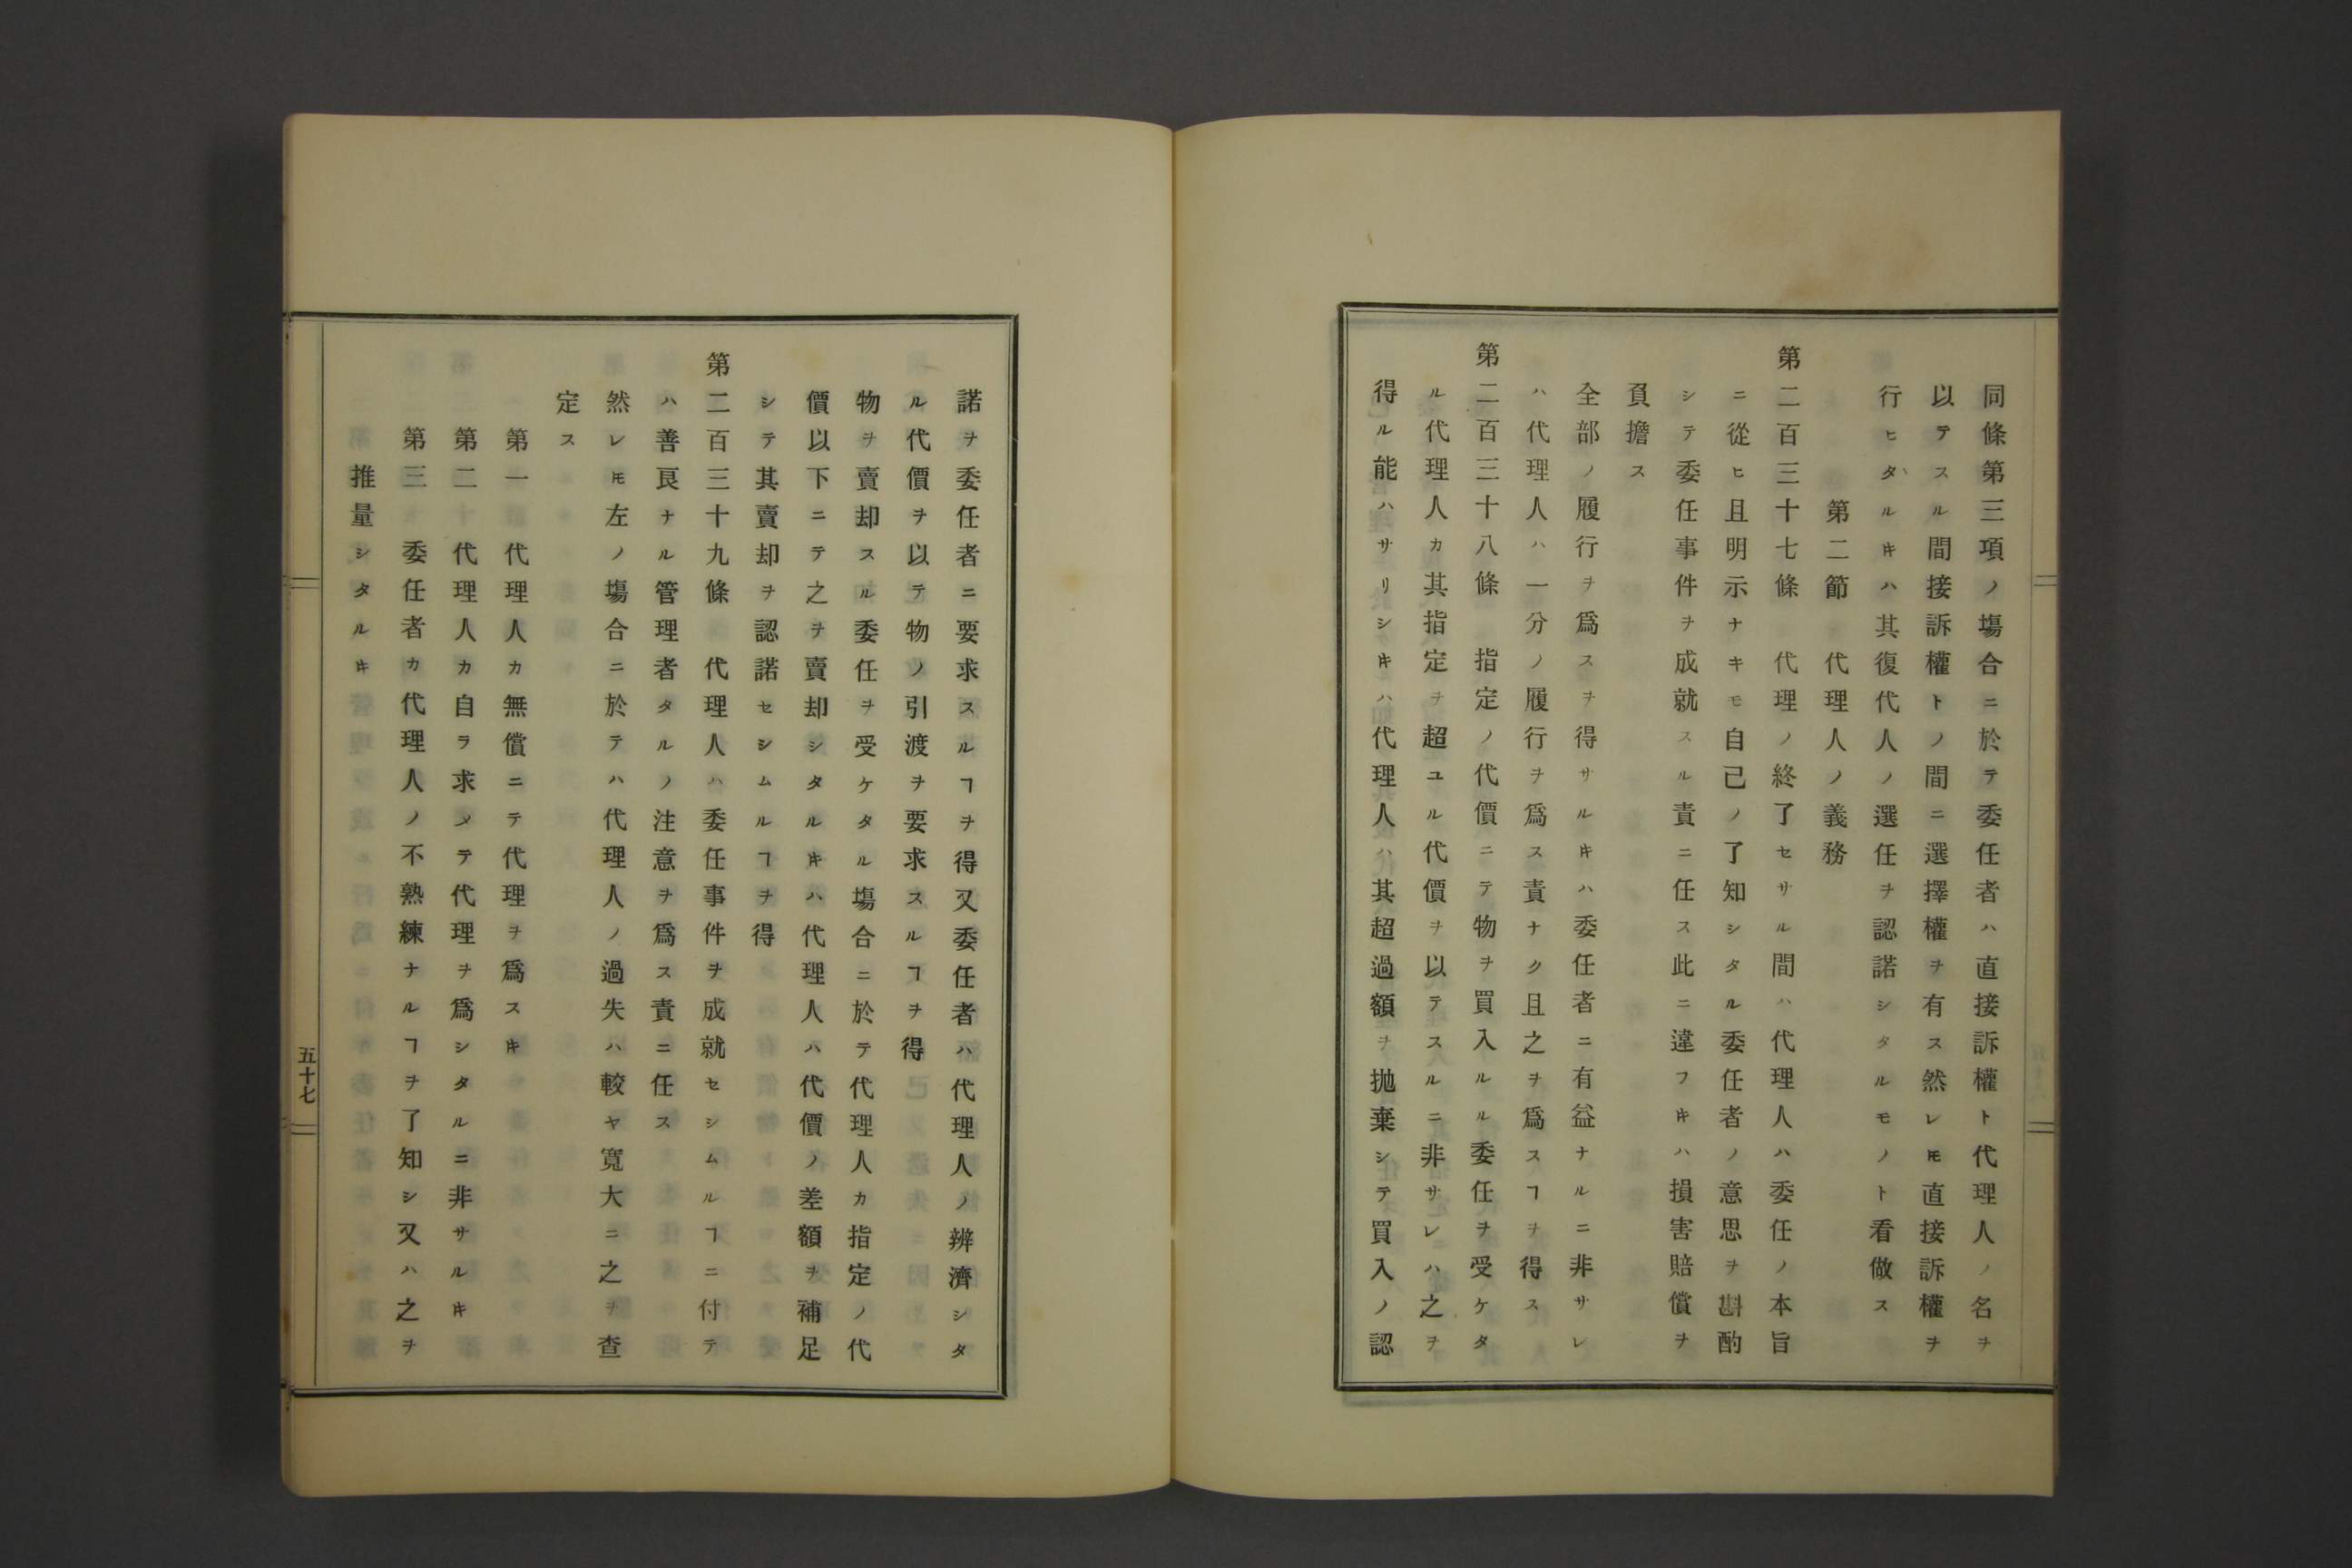 同條第三項ノ塲合ニ於テ委任者ハ直接訴權ト代理人ノ名ヲ
以テスル間接訴權トノ間ニ選擇權ヲ有ス然レ𪜈直接訴權ヲ
行ヒタルキハ其復代人ノ選任ヲ認諾シタルモノト看做ス
第二節　代理人ノ義務
第二百三十七條　代理ノ終了セサル間ハ代理人ハ委任ノ本旨
ニ從ヒ且明示ナキモ自己ノ了知シタル委任者ノ意思ヲ斟酌
シテ委任事件ヲ成就スル責ニ任ス此ニ違フキハ損害賠償ヲ
負擔ス
全部ノ履行ヲ爲スヲ得サルキハ委任者ニ有益ナルニ非サレ
ハ代理人ハ一分ノ履行ヲ爲ス責ナク且之ヲ爲スヿヲ得ス
第二百三十八條　指定ノ代價ニテ物ヲ買入ルル委任ヲ受ケタ
ル代理人カ其指定ヲ超ユル代價ヲ以テスルニ非サレハ之ヲ
得ル能ハサリシキハ代理人ハ其超過額ヲ抛棄シテ買入ノ認
諾ヲ委任者ニ要求スルヿヲ得又委任者ハ代理人ノ辨濟シタ
ル代價ヲ以テ物ノ引渡ヲ要求スルヿヲ得
物ヲ賣却スル委任ヲ受ケタル塲合ニ於テ代理人カ指定ノ代
價以下ニテ之ヲ賣却シタルキハ代理人ハ代價ノ差額ヲ補足
シテ其賣却ヲ認諾セシムルヿヲ得
第二百三十九條　代理人ハ委任事件ヲ成就セシムルヿニ付テ
ハ善良ナル管理者タルノ注意ヲ爲ス責ニ任ス
然レ𪜈左ノ塲合ニ於テハ代理人ノ過失ハ較ヤ寬大ニ之ヲ査
定ス
第一　代理人カ無償ニテ代理ヲ爲スキ
第二　代理人カ自ラ求メテ代理ヲ爲シタルニ非サルキ
第三　委任者カ代理人ノ不熟練ナルヿヲ了知シ又ハ之ヲ
推量シタルキ
五十七